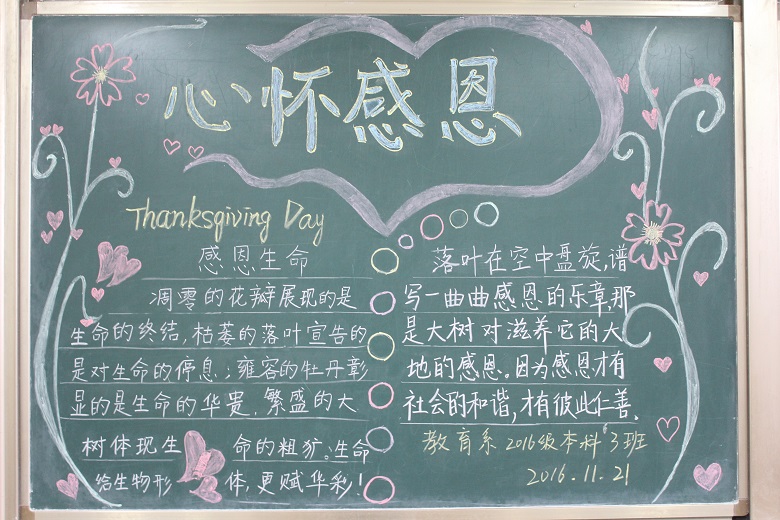 心怀感恩
Thanksgiving Day
感恩生命
凋零的花瓣展现的是
生命的终结,枯萎的落叶宣告的
是对生命的停息;雍容的牡丹彰
显的是生命的华贵,繁盛的大
树体现生命的粗犷。生命
给生物形体,更赋华彩!
落叶在空中盘旋,谱
写一曲曲感恩的乐章,那
是大树对滋养它的大
地的感恩。因为感恩才有
社会的和谐,才有彼此仁善.
教育系2016级本科3班
2016.11.21